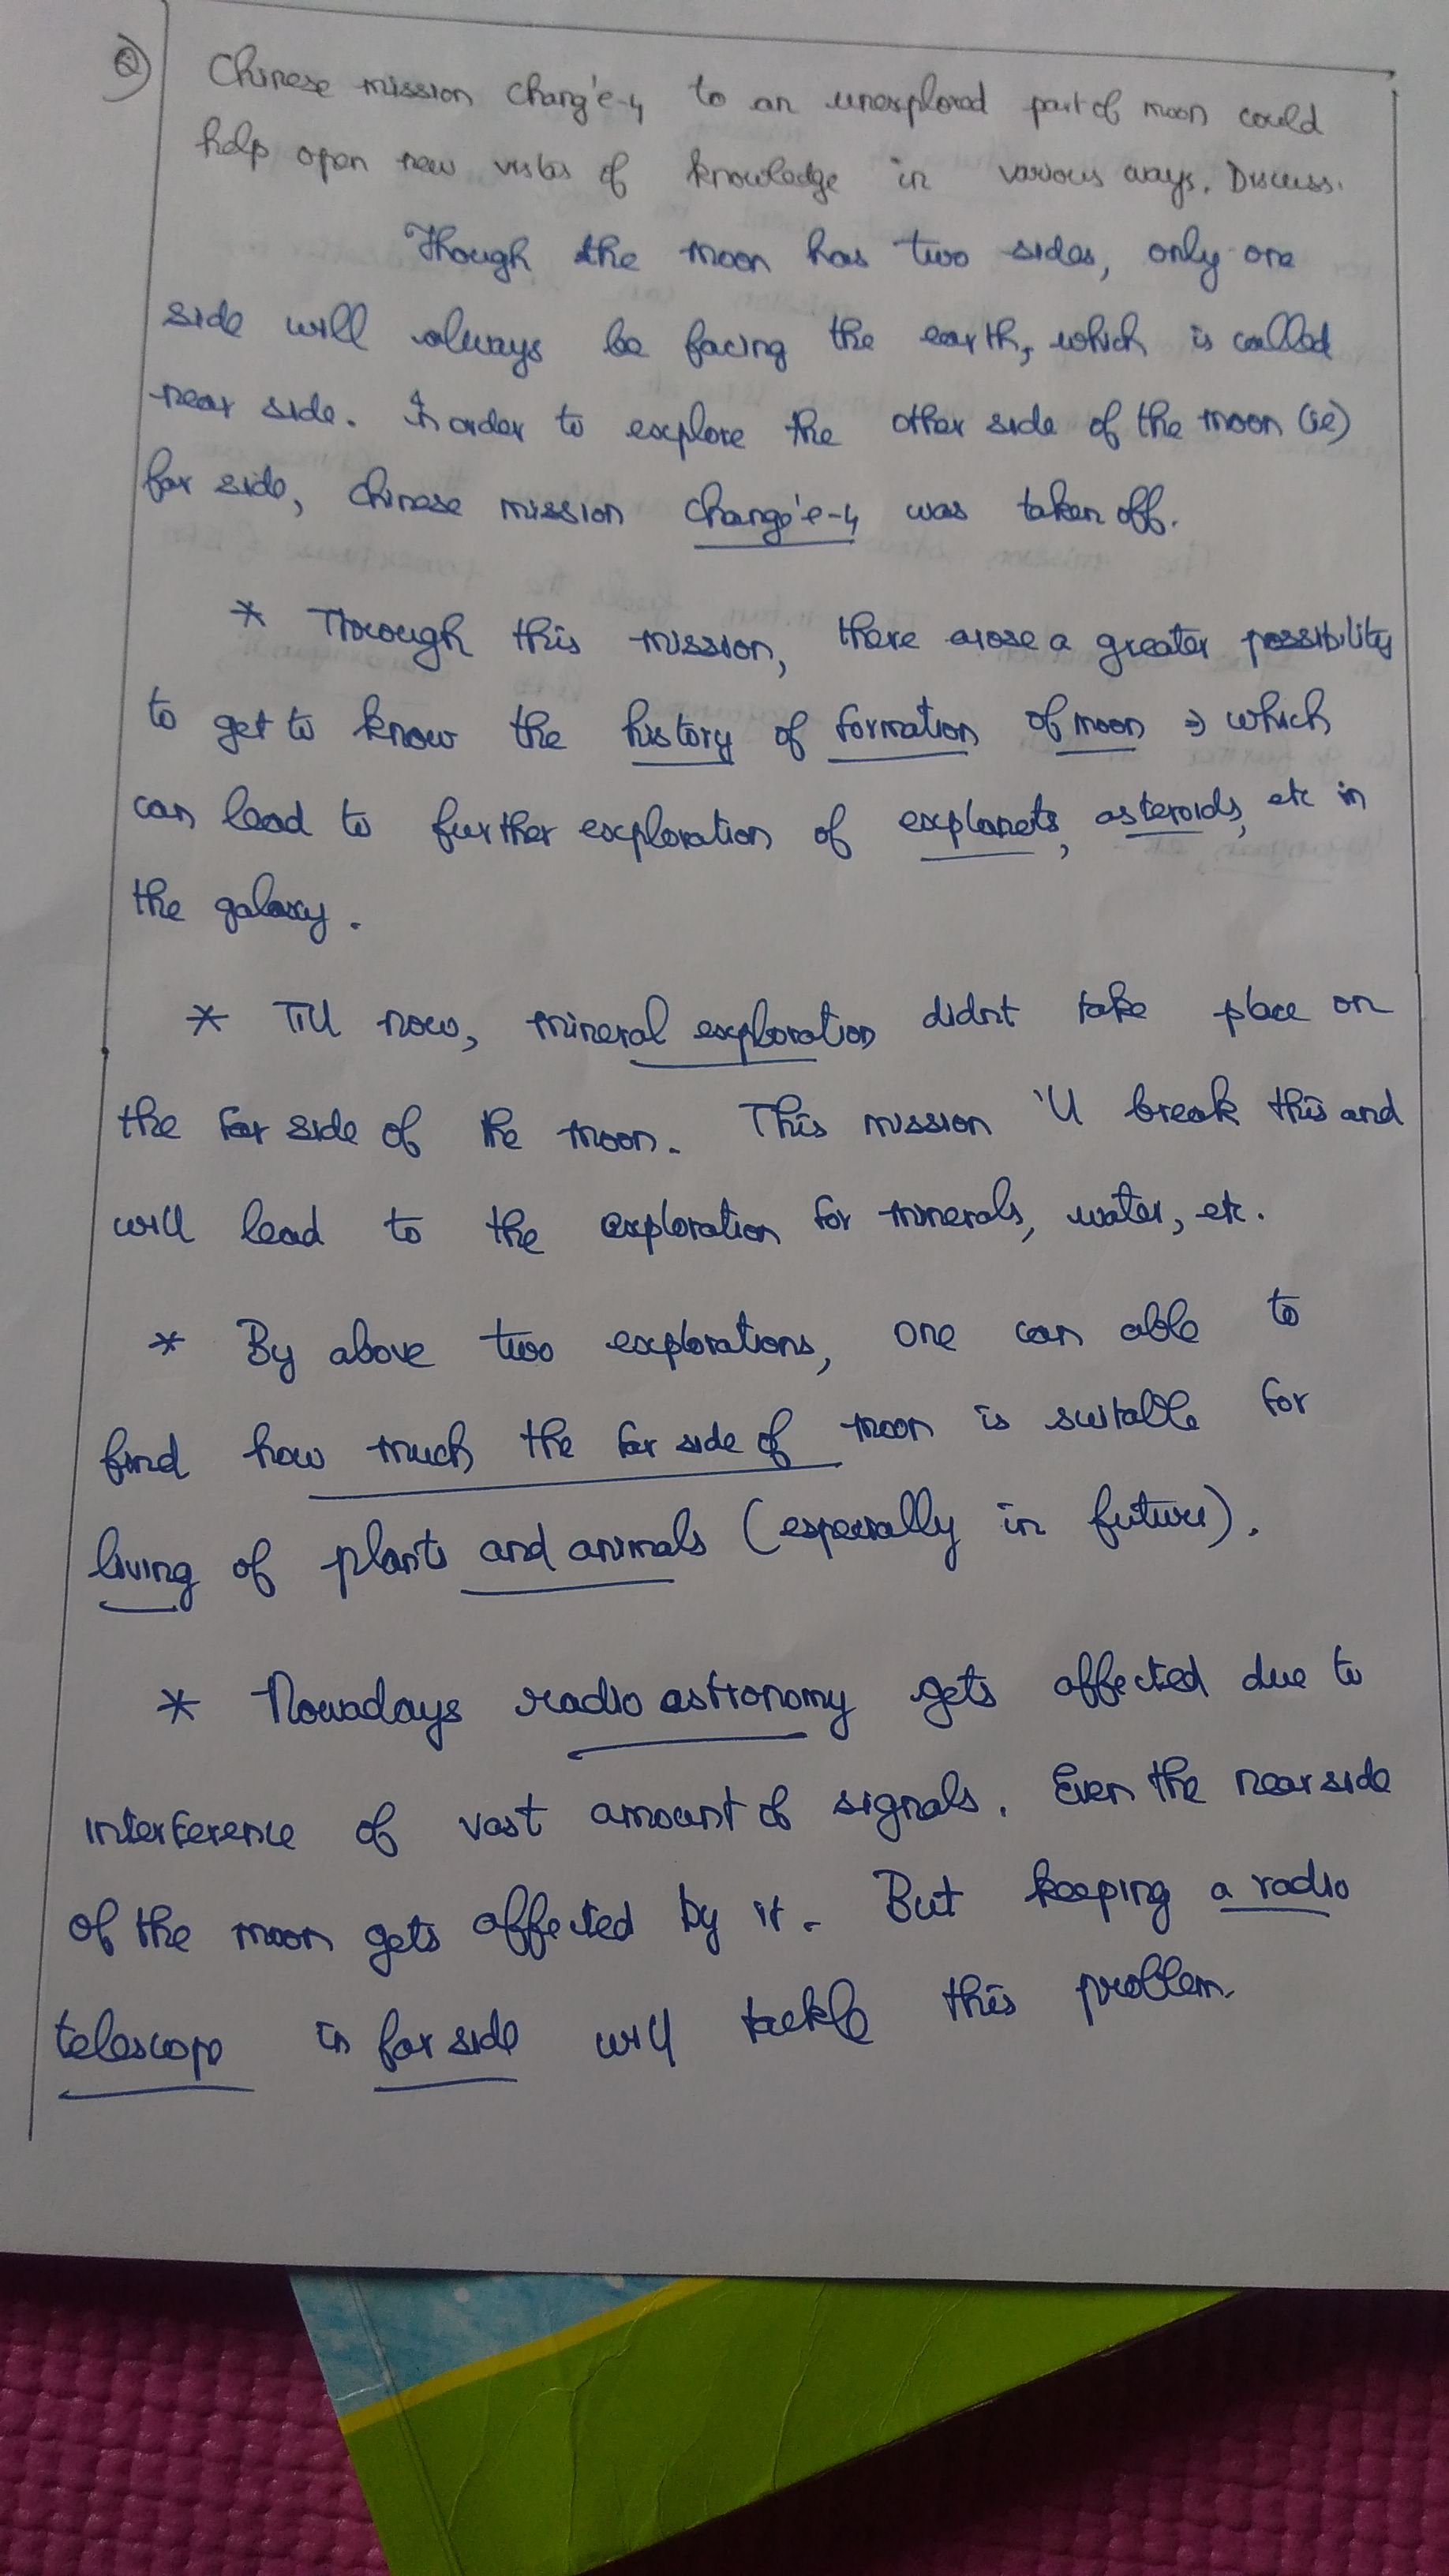 Q) Chinese mission Chang'e-4 to an unexplored part of moon could
help open new vistas of knowledge in various ways. Discuss.
Though the moon has two sides, only one
side will always be facing the earth, which is called
near side. In order to explore the other side of the moon (ie)
far side, Chinese mission Chang'e-4 was taken off.
* Through this mission, there arose a greater possibility
to get to know the history of formation of moon ⇒ which
can lead to further exploration of explanets, asteroids, etc in
the galaxy.
* Till now, mineral exploration didn't take place on
the far side of the moon. This mission 'll break this and
will lead to the exploration for minerals, water, etc.
* By above two explorations, one can able to
find how much the far side of moon is suitable for
living of plants and animals (especially in future).
* Nowadays radio astronomy gets affected due to
interference of vast amount of signals. Even the near side
of the moon gets affected by it. But keeping a radio
telescope in far side will tackle this problem.